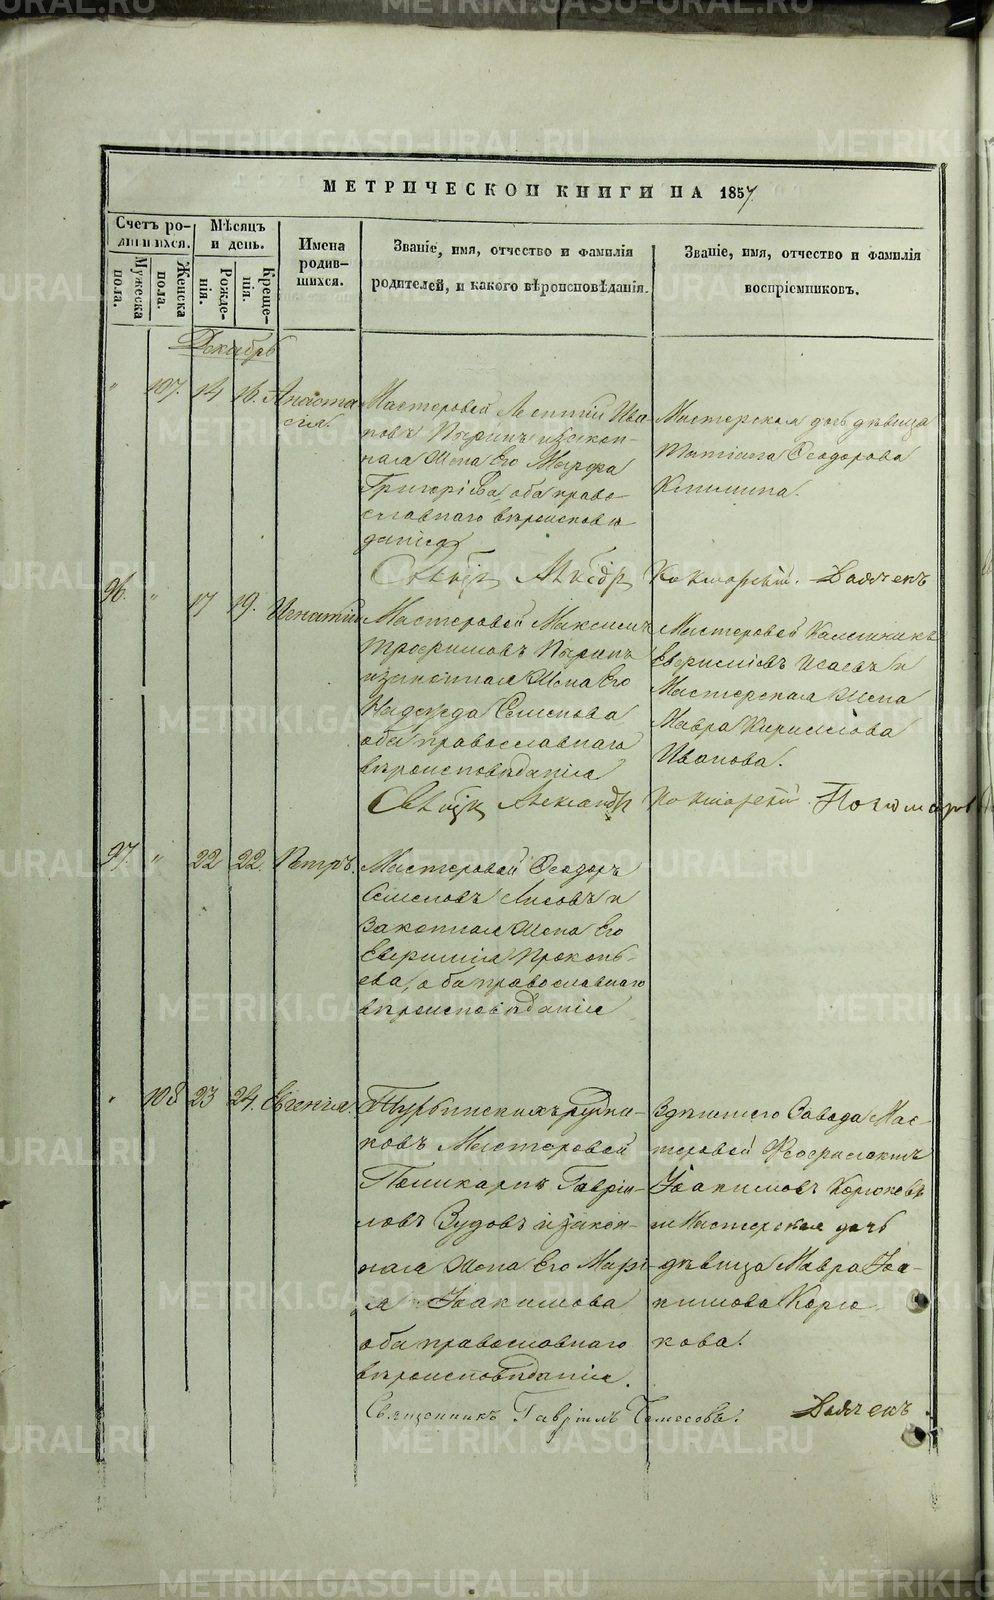 МЕТРИЧЕСКОЙ КНИГИ НА 1857
Счетъ ро-
дившихся.
Мужеска
пола.
Женска
пола.
Мѣсяцъ
и день.
Рожде-
нія.
Креще-
нія.
Имена
родив-
шихся.
Званіе, имя, отчество и фамилія
родителей, и какого вѣроисповѣданія.
Званіе, имя, отчество и фамилія
воспріемниковъ.
Декабрь
" 107. 14 16. Анаста
сія.
Мастеровой Леонтій Ива
новъ и закон-
ная жена Его Марфа
Григоріева, оба право
славнаго вѣроисповѣ
данія
Мастерская дочь дѣвица
Татіана Ѳеодорова
96. " 17 19. Игнатій
Мастеровой Максимъ
Трофимовъ
и законная жена Его
Надежда Семенова
оба православнаго
вѣроисповѣданія
Мастеровой
Исаевъ и
Мастерская жена
Мавра Кириллова
Иванова.
97. " 22 22. Петръ.
Мастеровой Ѳеодоръ
Семеновъ Лисовъ и
законная жена Его
Евфимія Прокопь-
ева, оба православнаго
вѣроисповѣданія
" 108 23 24. Евгенія.
Турьинскихъ рудни-
ковъ Мастеровой
Поликарпъ Гавріи-
ловъ Зудовъ и закон-
ная жена Его Марі-
я Іоакимова
оба православнаго
вѣроисповѣданія.
Здѣшняго Завода Мас-
теровой Ѳеофилактъ
Іоакимовъ Корюковъ
и Мастерская дочь
дѣвица Мавра Іоа-
кимова Корю
кова.
Священникъ Гавріилъ
METRIKI.GASO-URAL.RU